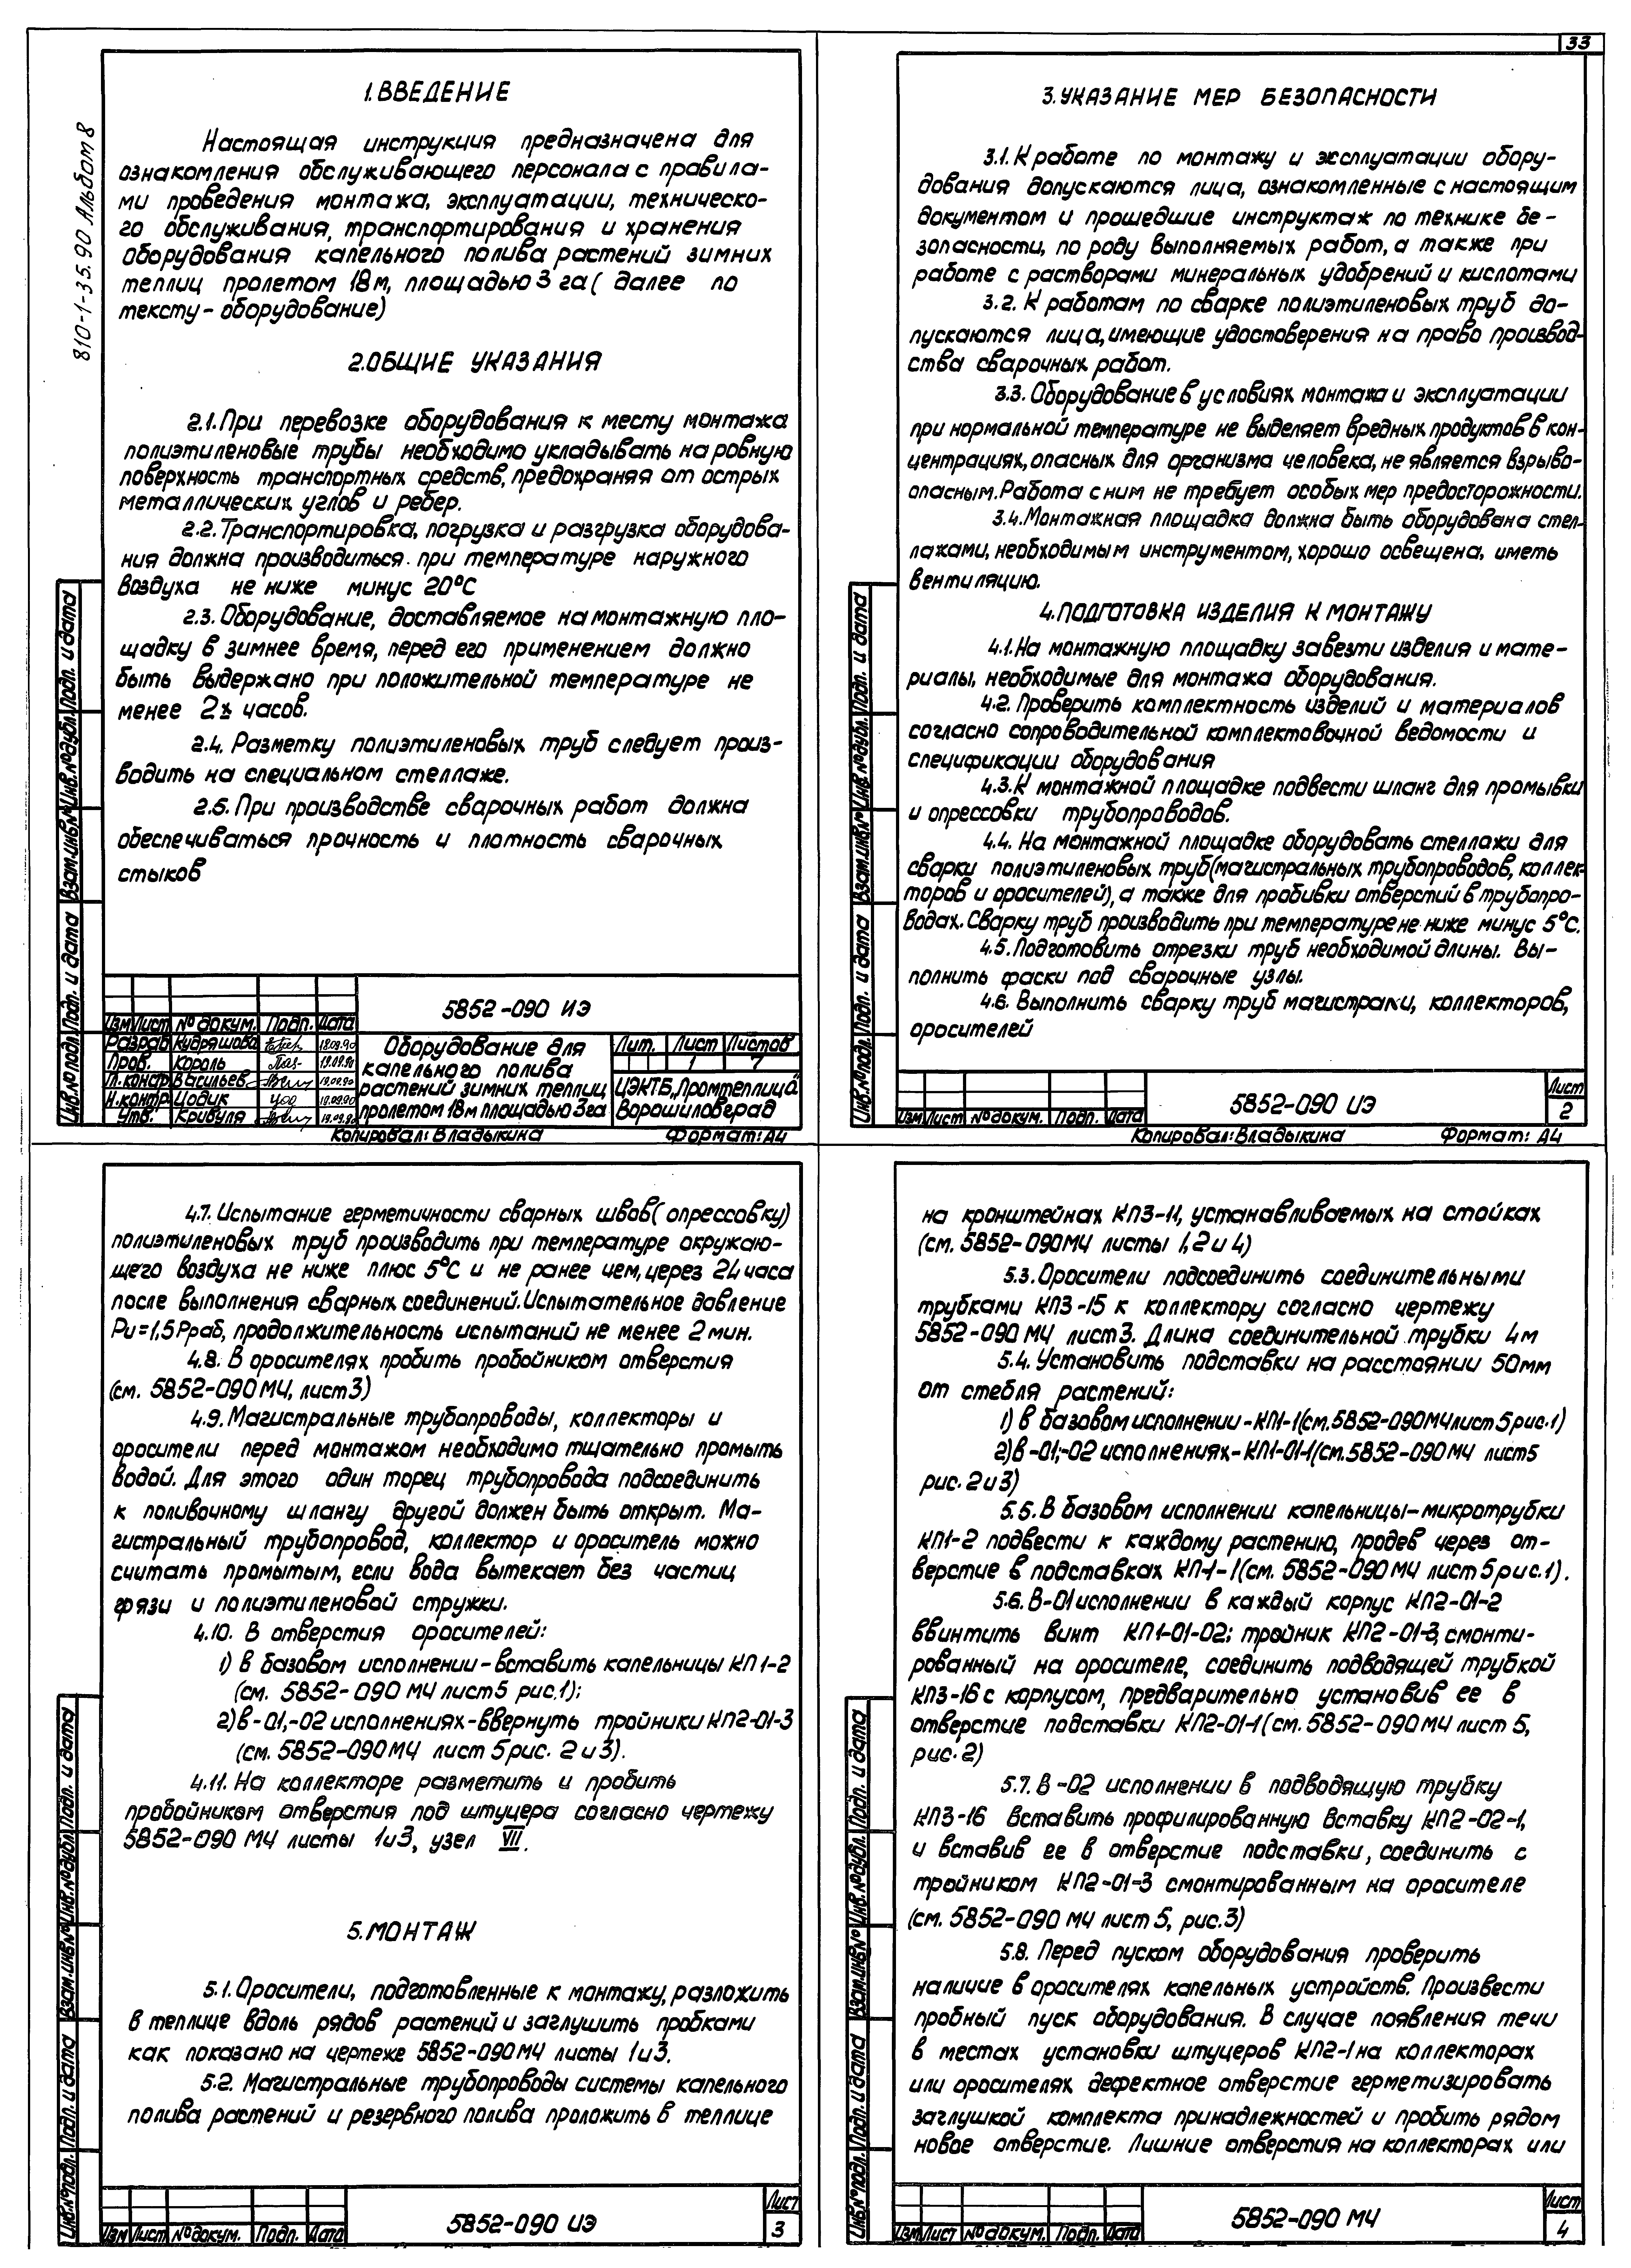 33
810-1-35.90 Альбом 8
1. ВВЕДЕНИЕ
Настоящая инструкция предназначена для
ознакомления обслуживающего персонала с правила-
ми проведения монтажа, эксплуатации, техническо-
го обслуживания, транспортирования и хранения
оборудования капельного полива растений зимних
теплиц пролетом 18 м, площадью 3 га ( далее по
тексту - оборудование)
2. ОБЩИЕ УКАЗАНИЯ
2.1. При перевозке оборудования к месту монтажа
полиэтиленовые трубы необходимо укладывать на ровную
поверхность транспортных средств, предохраняя от острых
металлических углов и ребер.
2.2. Транспортировка, погрузка и разгрузка оборудова-
ния должна производиться при температуре наружного
воздуха не ниже минус 20°С
2.3. Оборудование, доставляемое на монтажную пло-
щадку в зимнее время, перед его применением должно
быть выдержано при положительной температуре не
менее 2х часов.
2.4. Разметку полиэтиленовых труб следует произ-
водить на специальном стеллаже.
2.5. При производстве сварочных работ должна
обеспечиваться прочность и плотность сварочных
стыков
Инв.№подл. Подп. и дата Взам.инв.№ Инв.№дубл. Подп. и дата
5852-090 ИЭ
Изм Лист № докум. Подп. Дата
Разраб Кудряшова 18.09.90
Пров. Король 19.09.90
Васильев
Н.контр. Цодик 19.09.90
Утв. Кривуля 19.09.90
Оборудование для
капельного полива
растений зимних теплиц
пролетом 18м площадью 3га
Лит. Лист Листов
1 7
ЦЭКТБ„Промтеплица"
Ворошиловград
Копировал: Владыкина Формат: А4
3. УКАЗАНИЕ МЕР БЕЗОПАСНОСТИ
3.1. К работе по монтажу и эксплуатации обору-
дования допускаются лица, ознакомленные с настоящим
документом и прошедшие инструктаж по технике бе-
зопасности, по роду выполняемых работ, а также при
работе с растворами минеральных удобрений и кислотами
3.2. К работам по сварке полиэтиленовых труб до-
пускаются лица, имеющие удостоверения на право производ-
ства сварочных работ.
3.3. Оборудование в условиях монтажа и эксплуатации
при нормальной температуре не выделяет вредных продуктов в кон-
центрациях, опасных для организма человека, не является взрыво-
опасным. Работа с ним не требует особых мер предосторожности.
3.4. Монтажная площадка должна быть оборудована стел-
лажами, необходимым инструментом, хорошо освещена, иметь
вентиляцию.
4. ПОДГОТОВКА ИЗДЕЛИЯ К МОНТАЖУ
4.1. На монтажную площадку завезти изделия и мате-
риалы, необходимые для монтажа оборудования.
4.2. Проверить комплектность изделий и материалов
согласно сопроводительной комплектовочной ведомости и
спецификации оборудования
4.3. К монтажной площадке подвести шланг для промывки
и опрессовки трубопроводов.
4.4. На монтажной площадке оборудовать стеллажи для
сварки полиэтиленовых труб (магистральных трубопроводов, коллек-
торов и оросителей), а также для пробивки отверстий в трубопро-
водах. Сварку труб производить при температуре не ниже минус 5°С.
4.5. Подготовить отрезки труб необходимой длины. Вы-
полнить фаски под сварочные узлы.
4.6. Выполнить сварку труб магистрали, коллекторов,
оросителей
Инв.№подл. Подп. и дата Взам.инв.№ Инв.№дубл. Подп. и дата
Изм Лист № докум. Подп. Дата
5852-090 ИЭ
Лист
2
Копировал: Владыкина Формат: А4
4.7. Испытание герметичности сварных швов (опрессовку)
полиэтиленовых труб производить при температуре окружаю-
щего воздуха не ниже плюс 5°С и не ранее чем, через 24 часа
после выполнения сварных соединений. Испытательное давление
Ри=1,5Рраб, продолжительность испытаний не менее 2 мин.
4.8. В оросителях пробить пробойником отверстия
(см. 5852-090 МЧ, лист 3)
4.9. Магистральные трубопроводы, коллекторы и
оросители перед монтажом необходимо тщательно промыть
водой. Для этого один торец трубопровода подсоединить
к поливочному шлангу другой должен быть открыт. Ма-
гистральный трубопровод, коллектор и ороситель можно
считать промытым, если вода вытекает без частиц
грязи и полиэтиленовой стружки.
4.10. В отверстия оросителей:
1) в базовом исполнении - вставить капельницы КП1-2
(см. 5852-090 МЧ лист 5 рис.1);
2) в -01,-02 исполнениях - ввернуть тройники КП2-01-3
(см. 5852-090 МЧ лист 5 рис. 2 и 3).
4.11. На коллекторе разметить и пробить
пробойником отверстия под штуцера согласно чертежу
5852-090 МЧ листы 1 и 3, узел VII.
5. МОНТАЖ
5.1. Оросители, подготовленные к монтажу, разложить
в теплице вдоль рядов растений и заглушить пробками
как показано на чертеже 5852-090 МЧ листы 1 и 3.
5.2. Магистральные трубопроводы системы капельного
полива растений и резервного полива проложить в теплице
Инв.№подл. Подп. и дата Взам.инв.№ Инв.№дубл. Подп. и дата
Изм Лист № докум. Подп. Дата
5852-090 ИЭ
Лист
3
на кронштейнах КП3-11, устанавливаемых на стойках
(см. 5852-090 МЧ листы 1, 2 и 4)
5.3. Оросители подсоединить соединительными
трубками КП3-15 к коллектору согласно чертежу
5852-090 МЧ лист 3. Длина соединительной трубки 4 м
5.4. Установить подставки на расстоянии 50мм
от стебля растений:
1) в базовом исполнении - КП1-1 (см. 5852-090МЧ лист 5 рис.1)
2) в -01;-02 исполнениях - КП1-01-1 (см. 5852-090 МЧ лист 5
рис. 2 и 3)
5.5. В базовом исполнении капельницы-микротрубки
КП1-2 подвести к каждому растению, продев через от-
верстие в подставках КП-1-1 (см. 5852-090 МЧ лист 5 рис.1).
5.6. В -01 исполнении в каждый корпус КП2-01-2
ввинтить винт КП1-01-02; тройник КП2-01-3, смонти-
рованный на оросителе, соединить подводящей трубкой
КП3-16 с корпусом, предварительно установив ее в
отверстие подставки КП2-01-1 (см. 5852-090 МЧ лист 5,
рис. 2)
5.7. В -02 исполнении в подводящую трубку
КП3-16 вставить профилированную вставку КП2-02-1,
и вставив ее в отверстие подставки, соединить с
тройником КП2-01-3 смонтированным на оросителе
(см. 5852-090 МЧ лист 5, рис.3)
5.8. Перед пуском оборудования проверить
наличие в оросителях капельных устройств. Произвести
пробный пуск оборудования. В случае появления течи
в местах установки штуцеров КП2-1 на коллекторах
или оросителях дефектное отверстие герметизировать
заглушкой комплекта принадлежностей и пробить рядом
новое отверстие. Лишние отверстия на коллекторах или
Инв.№подл. Подп. и дата Взам.инв.№ Инв.№дубл. Подп. и дата
Изм Лист № докум. Подп. Дата
5852-090 МЧ
Лист
4